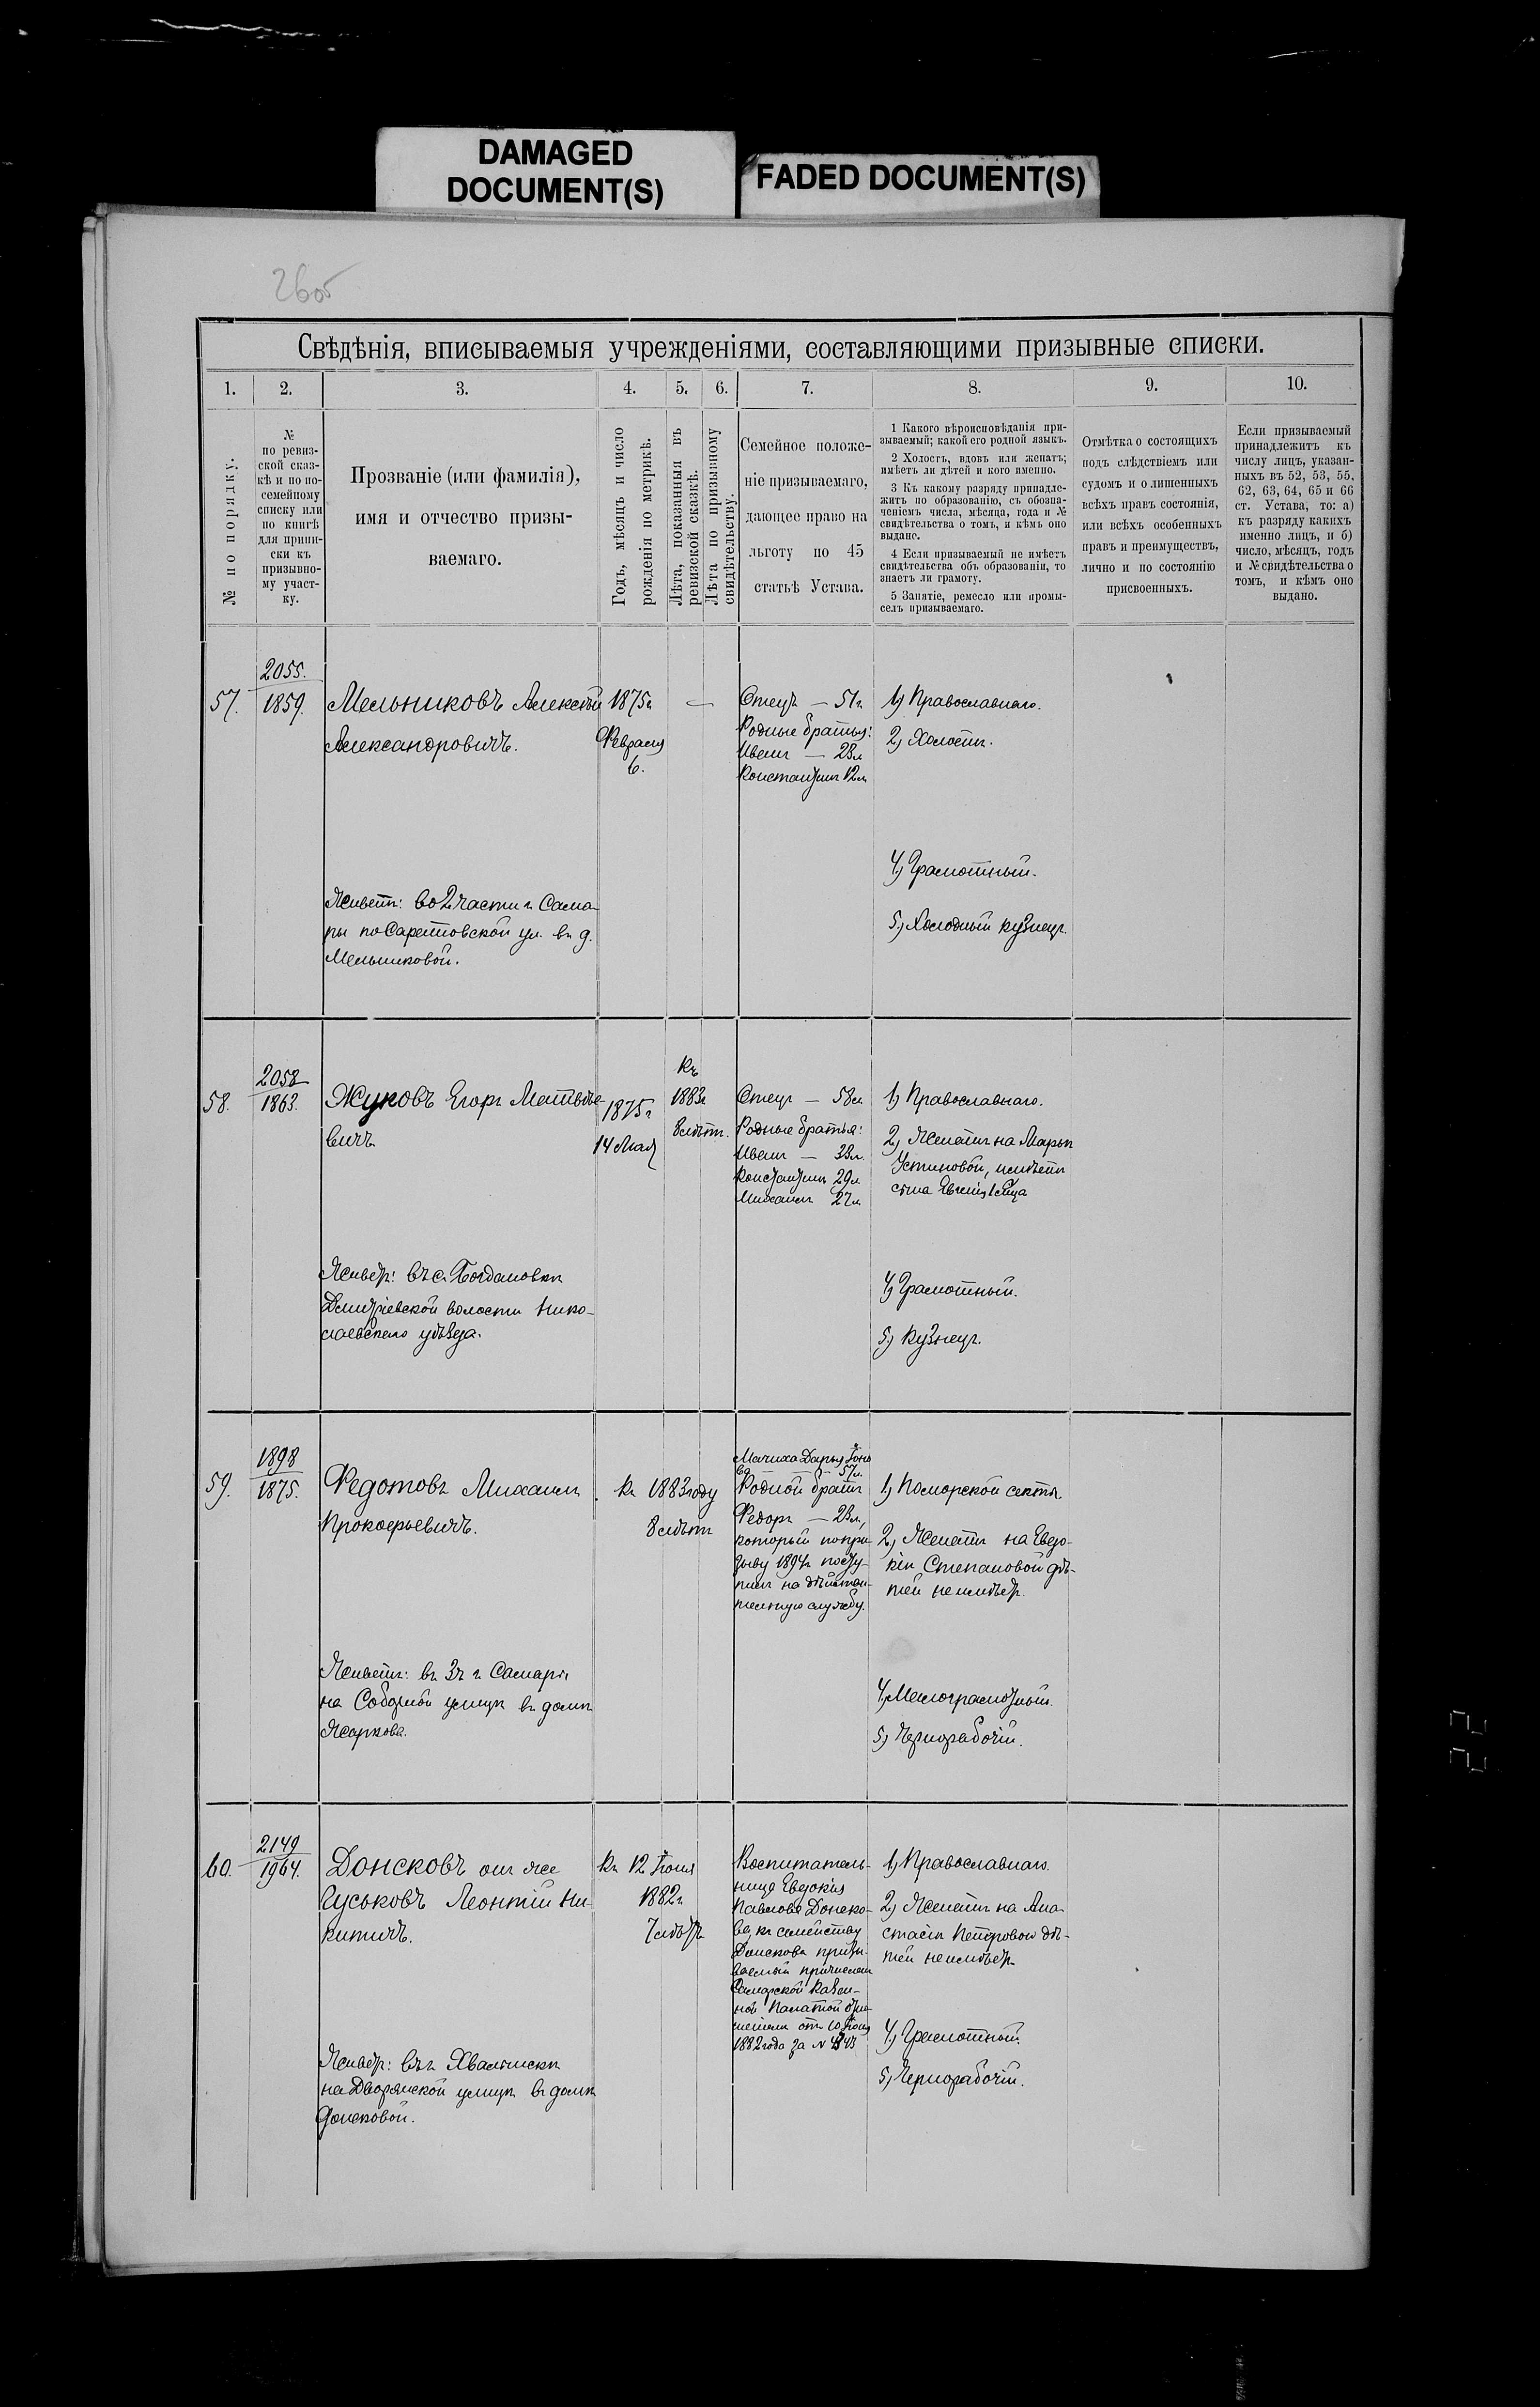 DAMAGED
DOCUMENT(S)
FADED DOCUMENT(S)
Свѣдѣнія, вписываемыя учрежденіями, составляющими призывные списки.
1. 2. 3. 4. 5. 6. 7. 8. 9. 10.
№ по порядку.
№
по ревиз-
ской сказ-
кѣ и по по-
семейному
списку или
по книгѣ
для припи-
ски къ
призывно-
му участ-
ку.
Прозваніе (или фамилія),
имя и отчество призы-
ваемаго.
Годъ, мѣсяцъ и число
рожденія по метрикѣ.
Лѣта, показанныя въ
ревизской сказкѣ.
Лѣта по призывному
свидѣтельству.
Семейное положе-
ніе призываемаго,
дающее право на
льготу по 45
статьѣ Устава.
1 Какого вѣроисповѣданія при-
зываемый; какой его родной языкъ.
2 Холостъ, вдовъ или женатъ;
имѣетъ ли дѣтей и кого именно.
3 Къ какому разряду принадле-
житъ по образованію, съ обозна-
ченіемъ числа, мѣсяца, года и №
свидѣтельства о томъ, и кѣмъ оно
выдано.
4 Если призываемый не имѣетъ
свидѣтельства объ образованіи, то
знаетъ ли грамоту.
5 Занятіе, ремесло или промы-
селъ призываемаго.
Отмѣтка о состоящихъ
подъ слѣдствіемъ или
судомъ и о лишенныхъ
всѣхъ правъ состоянія,
или всѣхъ особенныхъ
правъ и преимуществъ,
лично и по состоянію
присвоенныхъ.
Если призываемый
принадлежитъ къ
числу лицъ, указан-
ныхъ въ 52, 53, 55,
62, 63, 64, 65 и 66
ст. Устава, то: а)
къ разряду какихъ
именно лицъ, и б)
число, мѣсяцъ, годъ
и № свидѣтельства о
томъ, и кѣмъ оно
выдано.
57.
2055.
1859.
Мельниковъ Алексѣй
Александровичъ.
Живетъ: во 2 части г. Сама-
ры по Саратовской ул. въ д.
Мельниковой.
1875 г.
Февраля
6.
—
Отецъ — 51 г.
Родные братья:
Иванъ — 23 л.
Константинъ 12 л.
1) Православнаго.
2) Холостъ.
4) Грамотный.
5) Холодный кузнецъ.
58.
2058
1863.
Жуковъ Егоръ Матвѣе-
вичъ
Живетъ: въ с. Богдановкѣ
Дмитріевской волости Нико-
лаевскаго уѣзда.
1875 г.
14 Мая
Къ
1883 г.
8 лѣтъ.
Отецъ — 58 л.
Родные братья:
Иванъ — 33 л.
Константинъ 29 л.
Михаилъ 27 л.
1) Православнаго.
2) Женатъ на Марьѣ
Устиновой, имѣетъ
сына Евгенія
4) Грамотный.
5) Кузнецъ.
59.
1898
1875.
Федотовъ Михаилъ
Прокофьевичъ.
Живетъ: въ 3 ч. г. Самары
на Соборной улицѣ въ домѣ
Жаркова.
Къ 1883 году
8 лѣтъ
Мачиха Дарья
57 л.
Родной братъ
Федоръ — 23 л.,
который по при-
зыву 1894 г. посту-
пилъ на дѣйстви-
тельную службу.
1) Поморской секты.
2) Женатъ на Евдо-
кіи Степановой дѣ-
тей не имѣетъ.
4) Малограмотный.
5) Чернорабочій.
60.
2149
1964.
Донсковъ онъ же
Гуськовъ Леонтій Ни-
китичъ.
Живетъ: въ г. Хвалынскѣ
на Дворянской улицѣ въ домѣ
Донсковой.
Къ 12 Іюня
1882 г.
7 лѣтъ
Воспитатель-
ница Евдокія
Павлова Донско-
ва, къ семейству
Донскова призы-
ваемый причисленъ
Самарской Казен-
ной Палатой отно-
шеніемъ отъ 10 Іюня
1882 года за №
1) Православнаго.
2) Женатъ на Ана-
стасіи Петровой дѣ-
тей не имѣетъ.
4) Грамотный.
5) Чернорабочій.